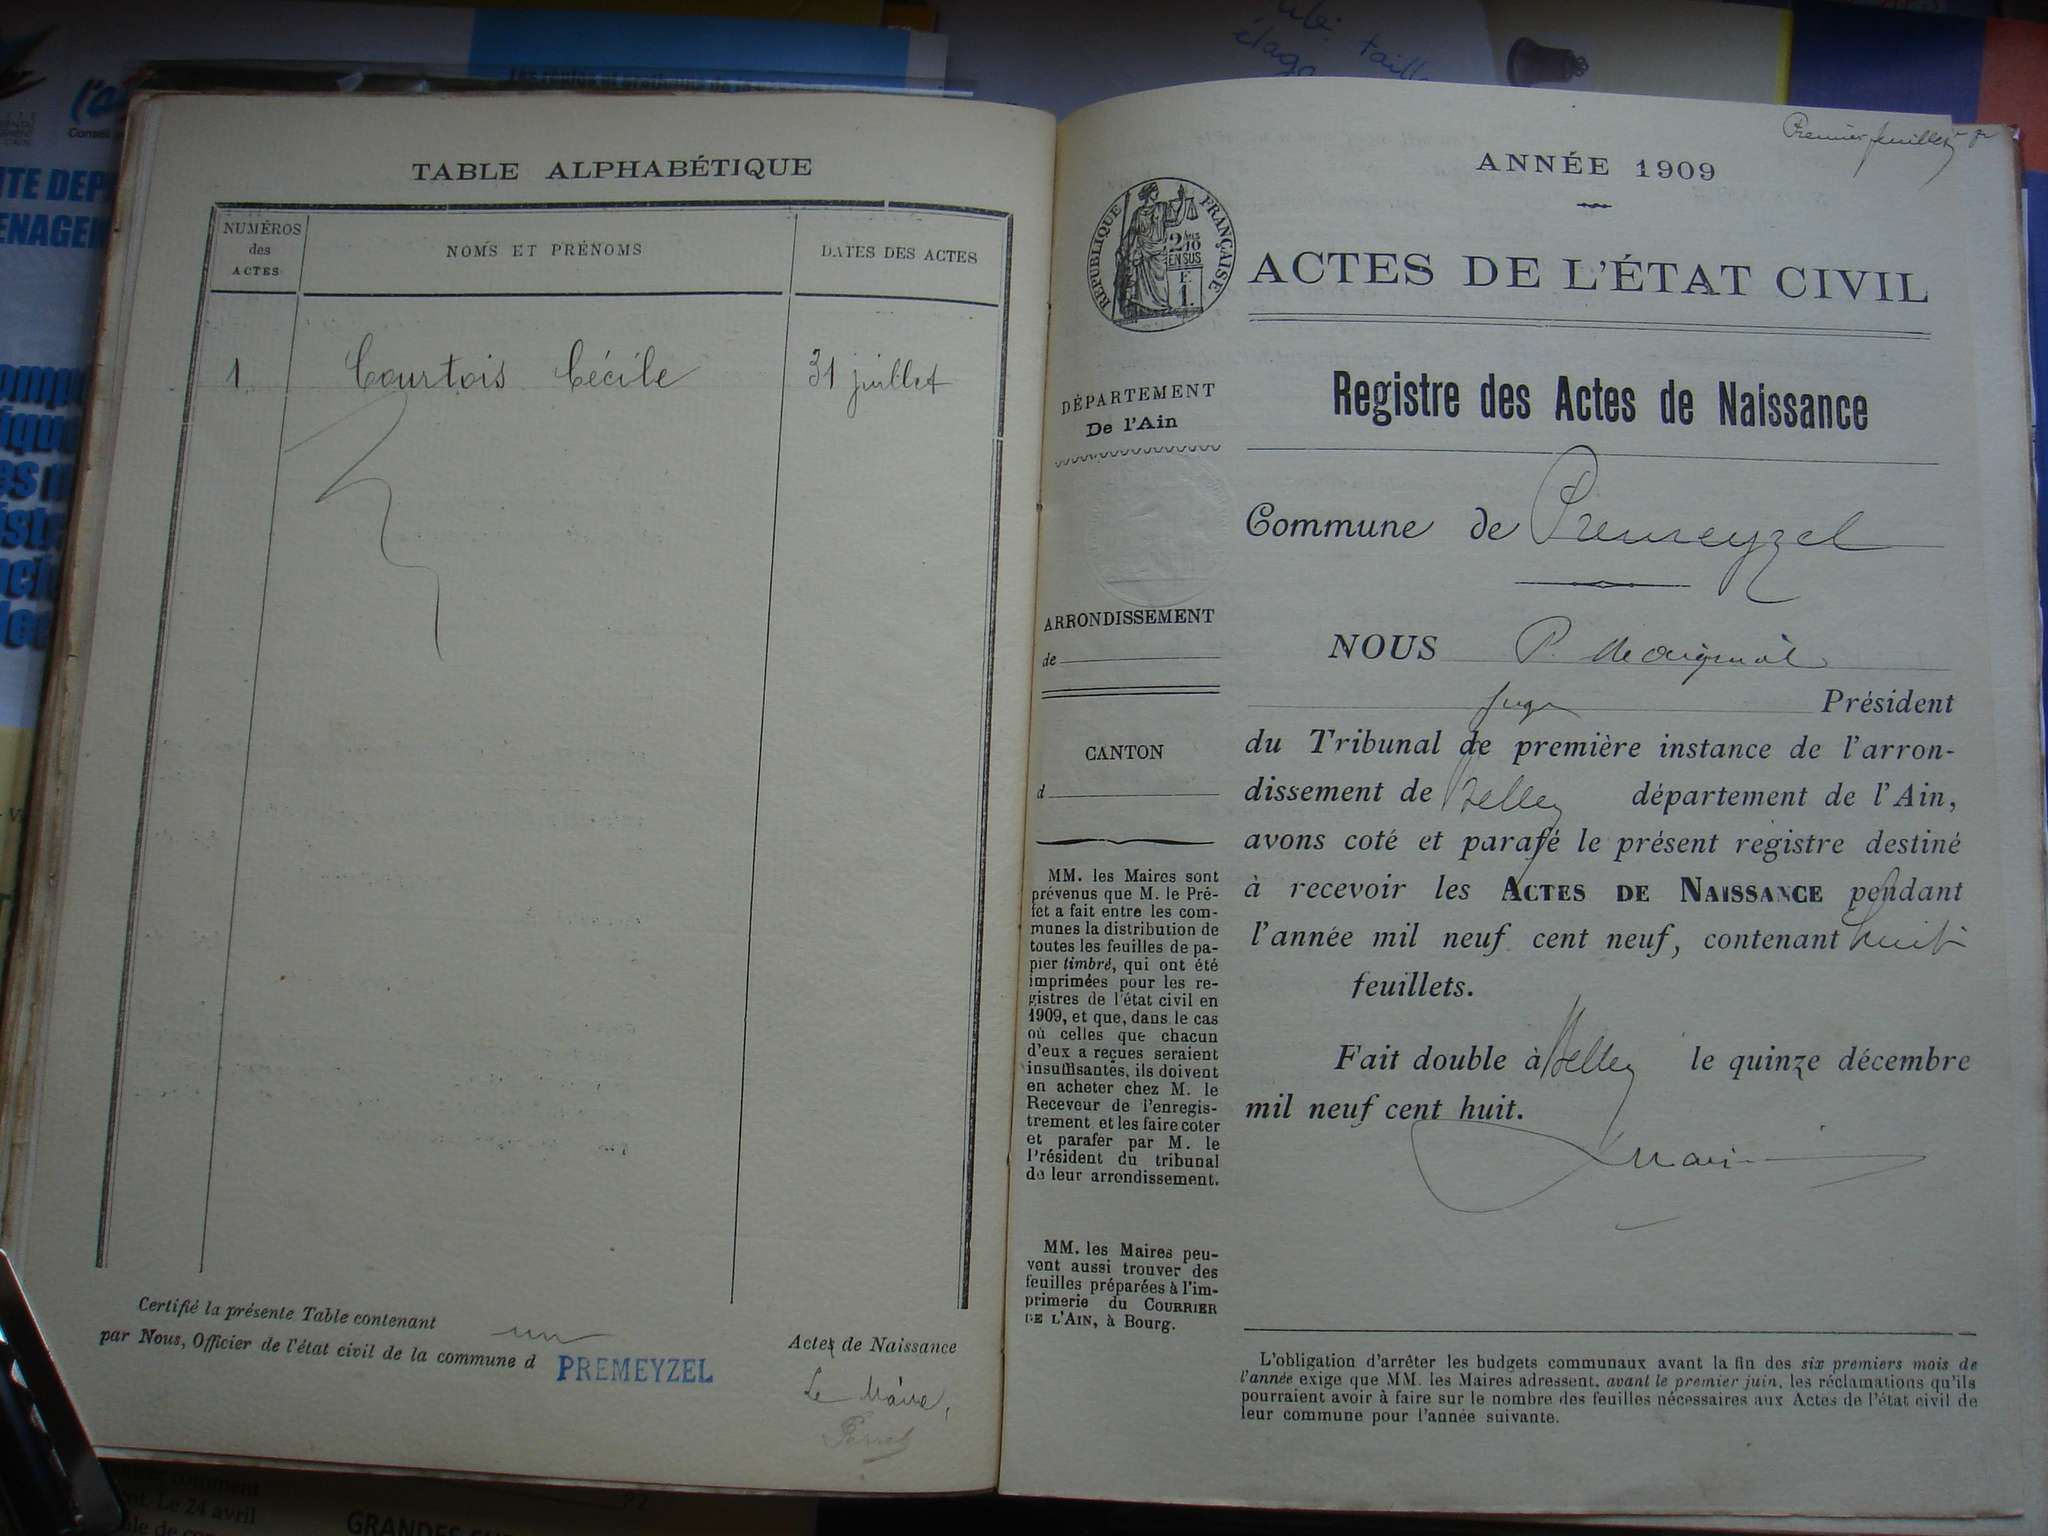 TABLE ALPHABÉTIQUE
NUMÉROS
des
ACTES
NOMS ET PRÉNOMS
DATES DES ACTES
1 Courtois Cécile 31 juillet
Certifié la présente Table contenant un Actes de Naissance
par Nous, Officier de l'état civil de la commune d PREMEYZEL
Le Maire,
Perret
Premier feuillet
ANNÉE 1909
RÉPUBLIQUE FRANÇAISE
2/10
EN SUS
F.
1.
ACTES DE L'ÉTAT CIVIL
DÉPARTEMENT
De l'Ain
ARRONDISSEMENT
de
CANTON
d
MM. les Maires sont
prévenus que M. le Pré-
fet a fait entre les com-
munes la distribution de
toutes les feuilles de pa-
pier timbré, qui ont été
imprimées pour les re-
gistres de l'état civil en
1909, et que, dans le cas
où celles que chacun
d'eux a reçues seraient
insuffisantes, ils doivent
en acheter chez M. le
Receveur de l'enregis-
trement et les faire coter
et parafer par M. le
Président du tribunal
de leur arrondissement.
MM. les Maires peu-
vent aussi trouver des
feuilles préparées à l'im-
primerie du COURRIER
DE L'AIN, à Bourg.
Registre des Actes de Naissance
Commune de Premeyzel
NOUS P.
juge Président
du Tribunal de première instance de l'arron-
dissement de Belley département de l'Ain,
avons coté et parafé le présent registre destiné
à recevoir les ACTES DE NAISSANCE pendant
l'année mil neuf cent neuf, contenant huit
feuillets.
Fait double à Belley le quinze décembre
mil neuf cent huit.
L'obligation d'arrêter les budgets communaux avant la fin des six premiers mois de
l'année exige que MM. les Maires adressent, avant le premier juin, les réclamations qu'ils
pourraient avoir à faire sur le nombre des feuilles nécessaires aux Actes de l'état civil de
leur commune pour l'année suivante.